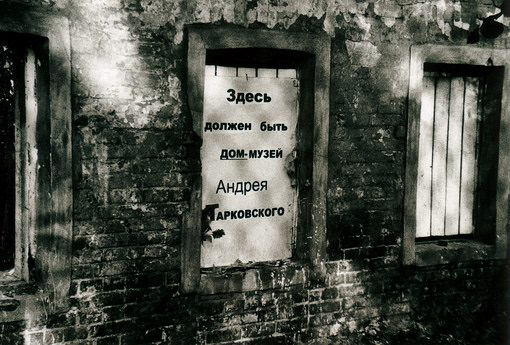 Здесь
должен быть
дом-музей
Андрея
Тарковского